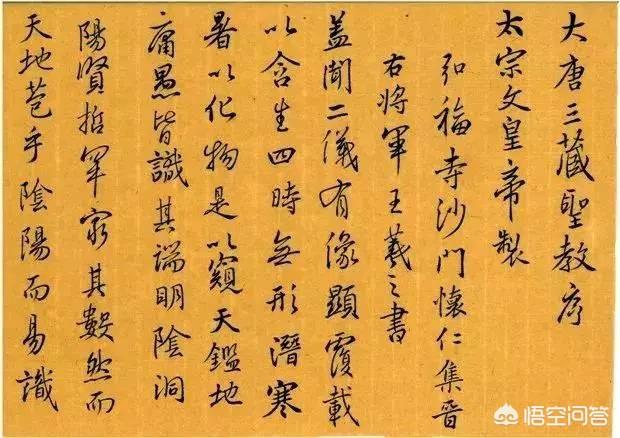 大唐三藏聖教序
太宗文皇帝製
弘福寺沙門懷仁集晉
右將軍王羲之書
蓋聞二儀有像顯覆載
以含生四時無形潛寒
暑以化物是以窺天鑑地
庸愚皆識其端明陰洞
陽賢哲罕窮其數然而
天地苞乎陰陽而易識
悟空问答